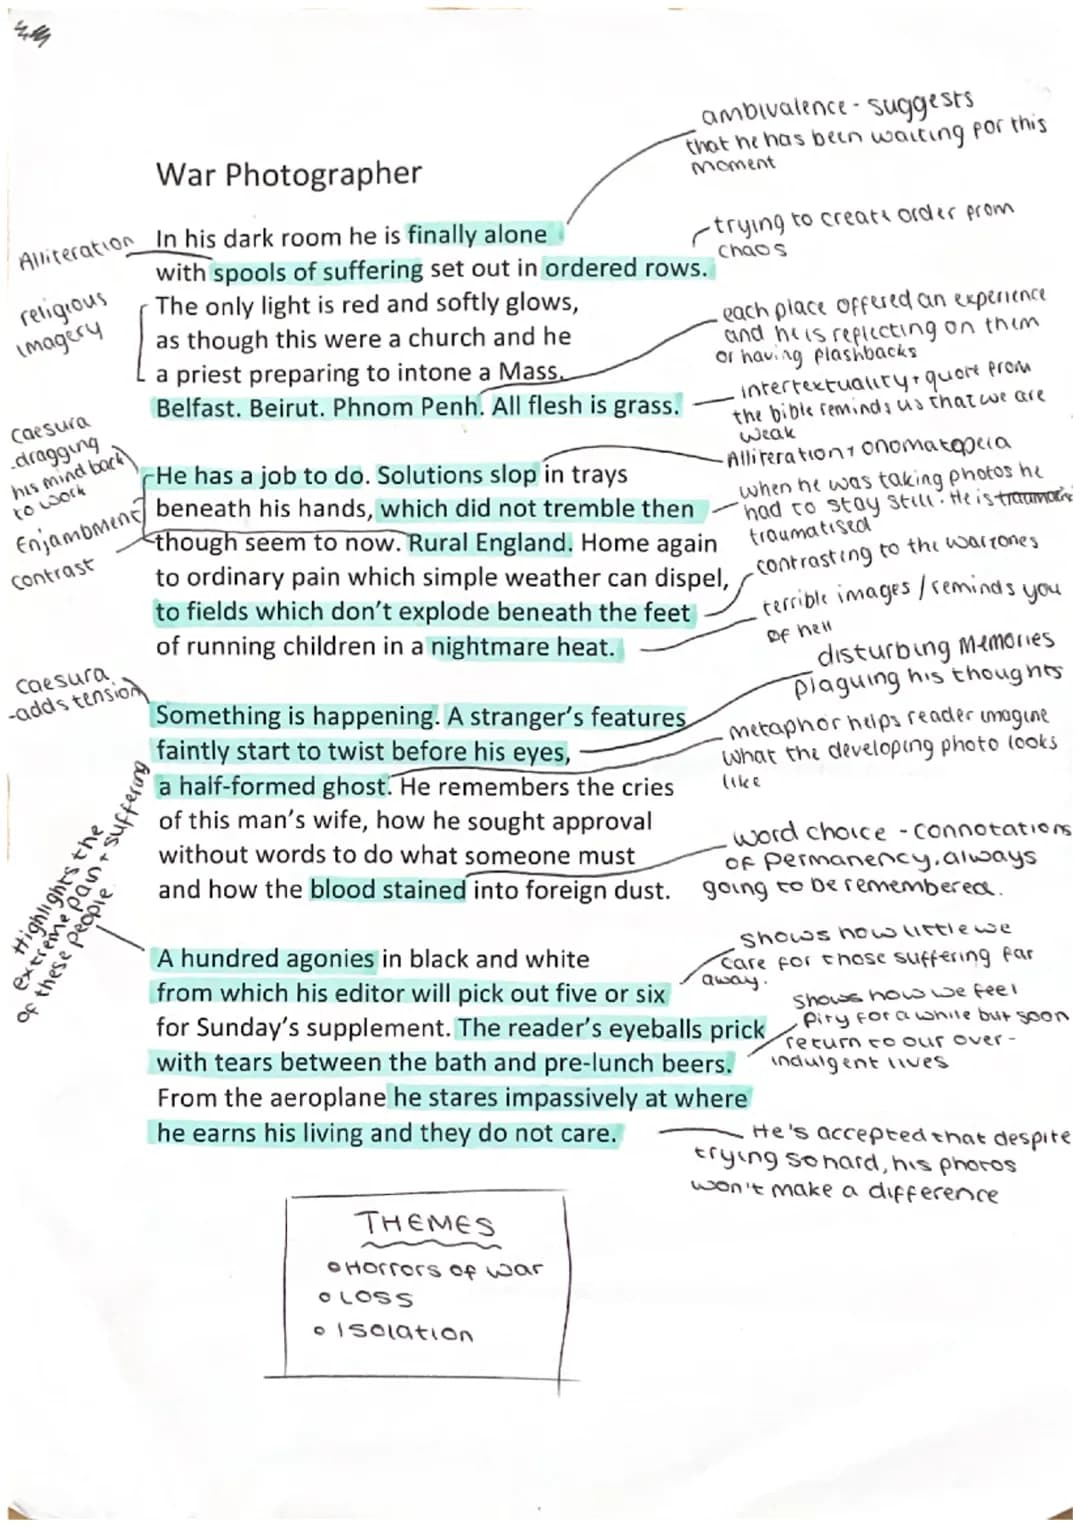 ambivalence - suggests
that he has been waiting for this
moment
War Photographer
Alliteration
In his dark room he is finally alone
trying to create order from
chaos
with spools of suffering set out in ordered rows.
religious
imagery
The only light is red and softly glows,
as though this were a church and he
a priest preparing to intone a Mass.
each place offered an experience
and he is reflecting on them
or having flashbacks
Belfast. Beirut. Phnom Penh. All flesh is grass.
intertextuality + quote from
the bible reminds us that we are
weak
Caesura
-dragging
his mind back
to work
Alliteration + onomatopeia
He has a job to do. Solutions slop in trays
beneath his hands, which did not tremble then
when he was taking photos he
had to stay still. He is
traumatised
Enjambment
contrast
though seem to now. Rural England. Home again
to ordinary pain which simple weather can dispel,
contrasting to the warzones
to fields which don't explode beneath the feet
of running children in a nightmare heat.
terrible images / reminds you
of hell
Caesura.
-adds tension
disturbing memories
plaguing his thoughts
Something is happening. A stranger's features
faintly start to twist before his eyes,
a half-formed ghost. He remembers the cries
metaphor helps reader imagine
what the developing photo looks
like
of this man's wife, how he sought approval
without words to do what someone must
and how the blood stained into foreign dust.
word choice - connotations
of permanency, always
going to be remembered.
Highlights the
extreme pain + suffering
of these people
A hundred agonies in black and white
from which his editor will pick out five or six
shows how little we
care for those suffering far
away.
for Sunday's supplement. The reader's eyeballs prick
with tears between the bath and pre-lunch beers.
shows how we feel
pity for a while but soon
return to our over-
indulgent lives
From the aeroplane he stares impassively at where
he earns his living and they do not care.
He's accepted that despite
trying so hard, his photos
won't make a difference
THEMES
• Horrors of war
• Loss
• Isolation